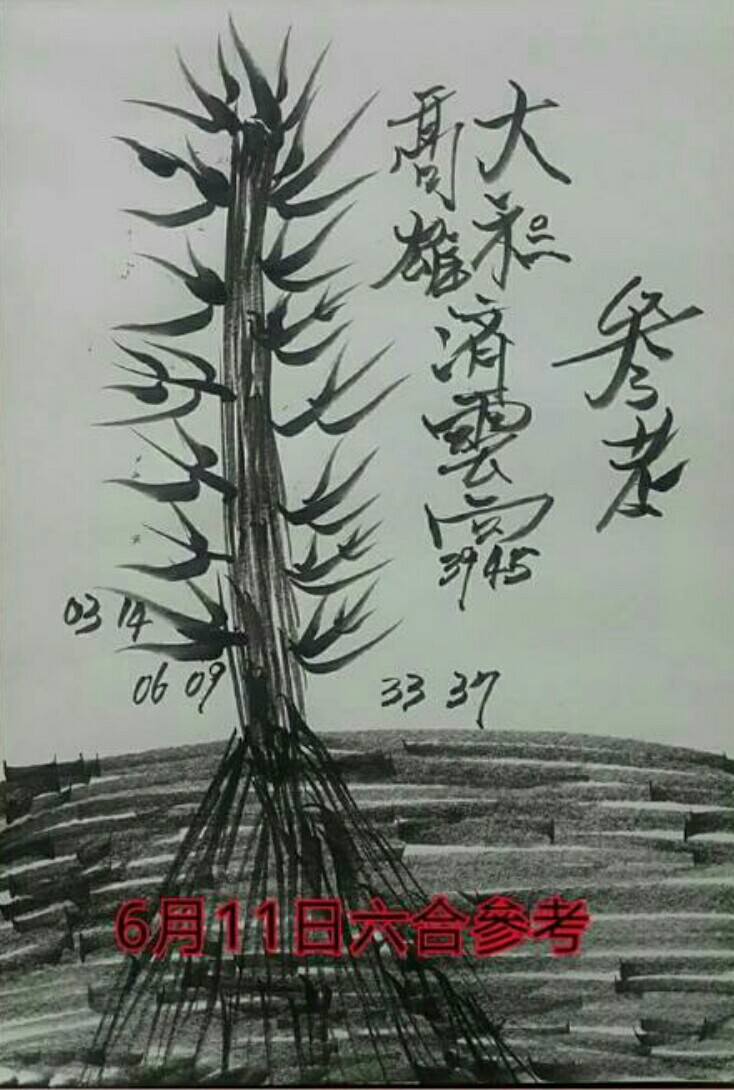 參考
大
高雄
濟雲宮
39 45
03 14
06 09
33 37
6月11日六合參考